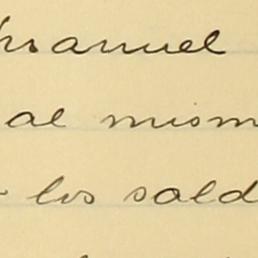 Manuel
al mism
los sald